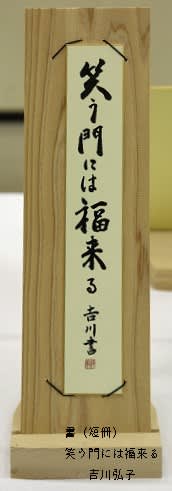 笑う門には福来る
吉川書
書（短冊）
笑う門には福来る
吉川弘子